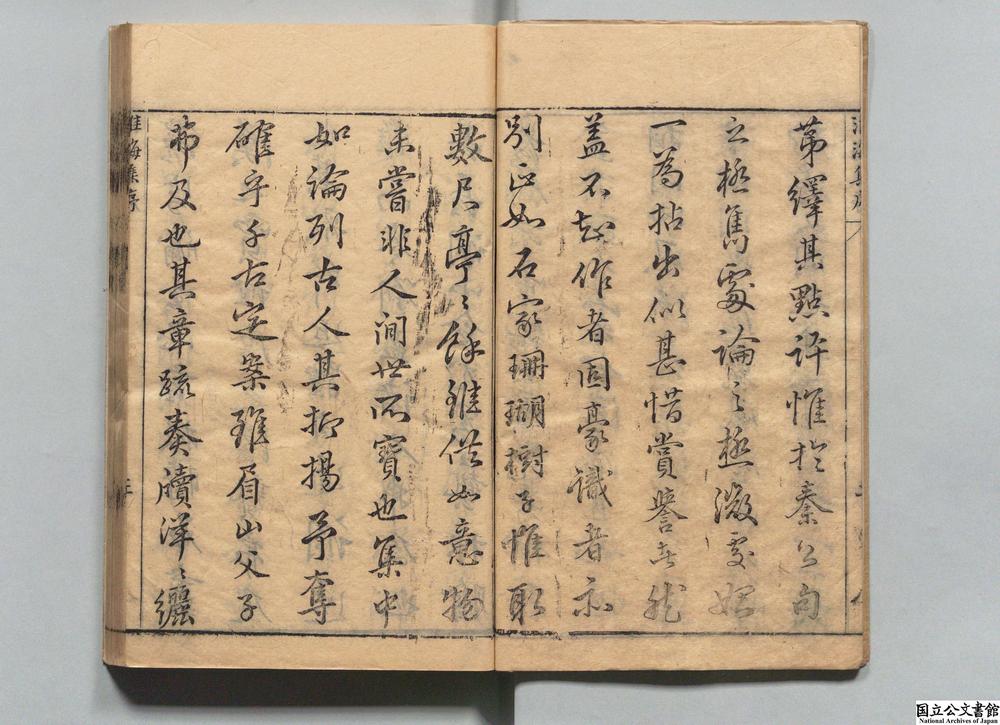 第繹其點評惟於秦公句
之極雋處論之極微處姑
一為拈出似甚惜賞譽者然
蓋不知作者固豪識者亦
別正如石家珊瑚樹子惟取
數尺亭〻餘雖供如意物
未嘗非人間世所寶也集中
如論列古人其抑揚予奪
確乎千古定案雖眉山父子
弗及也其章疏奏牘洋〻纚
淮海集序
国立公文書館
National Archives of Japan